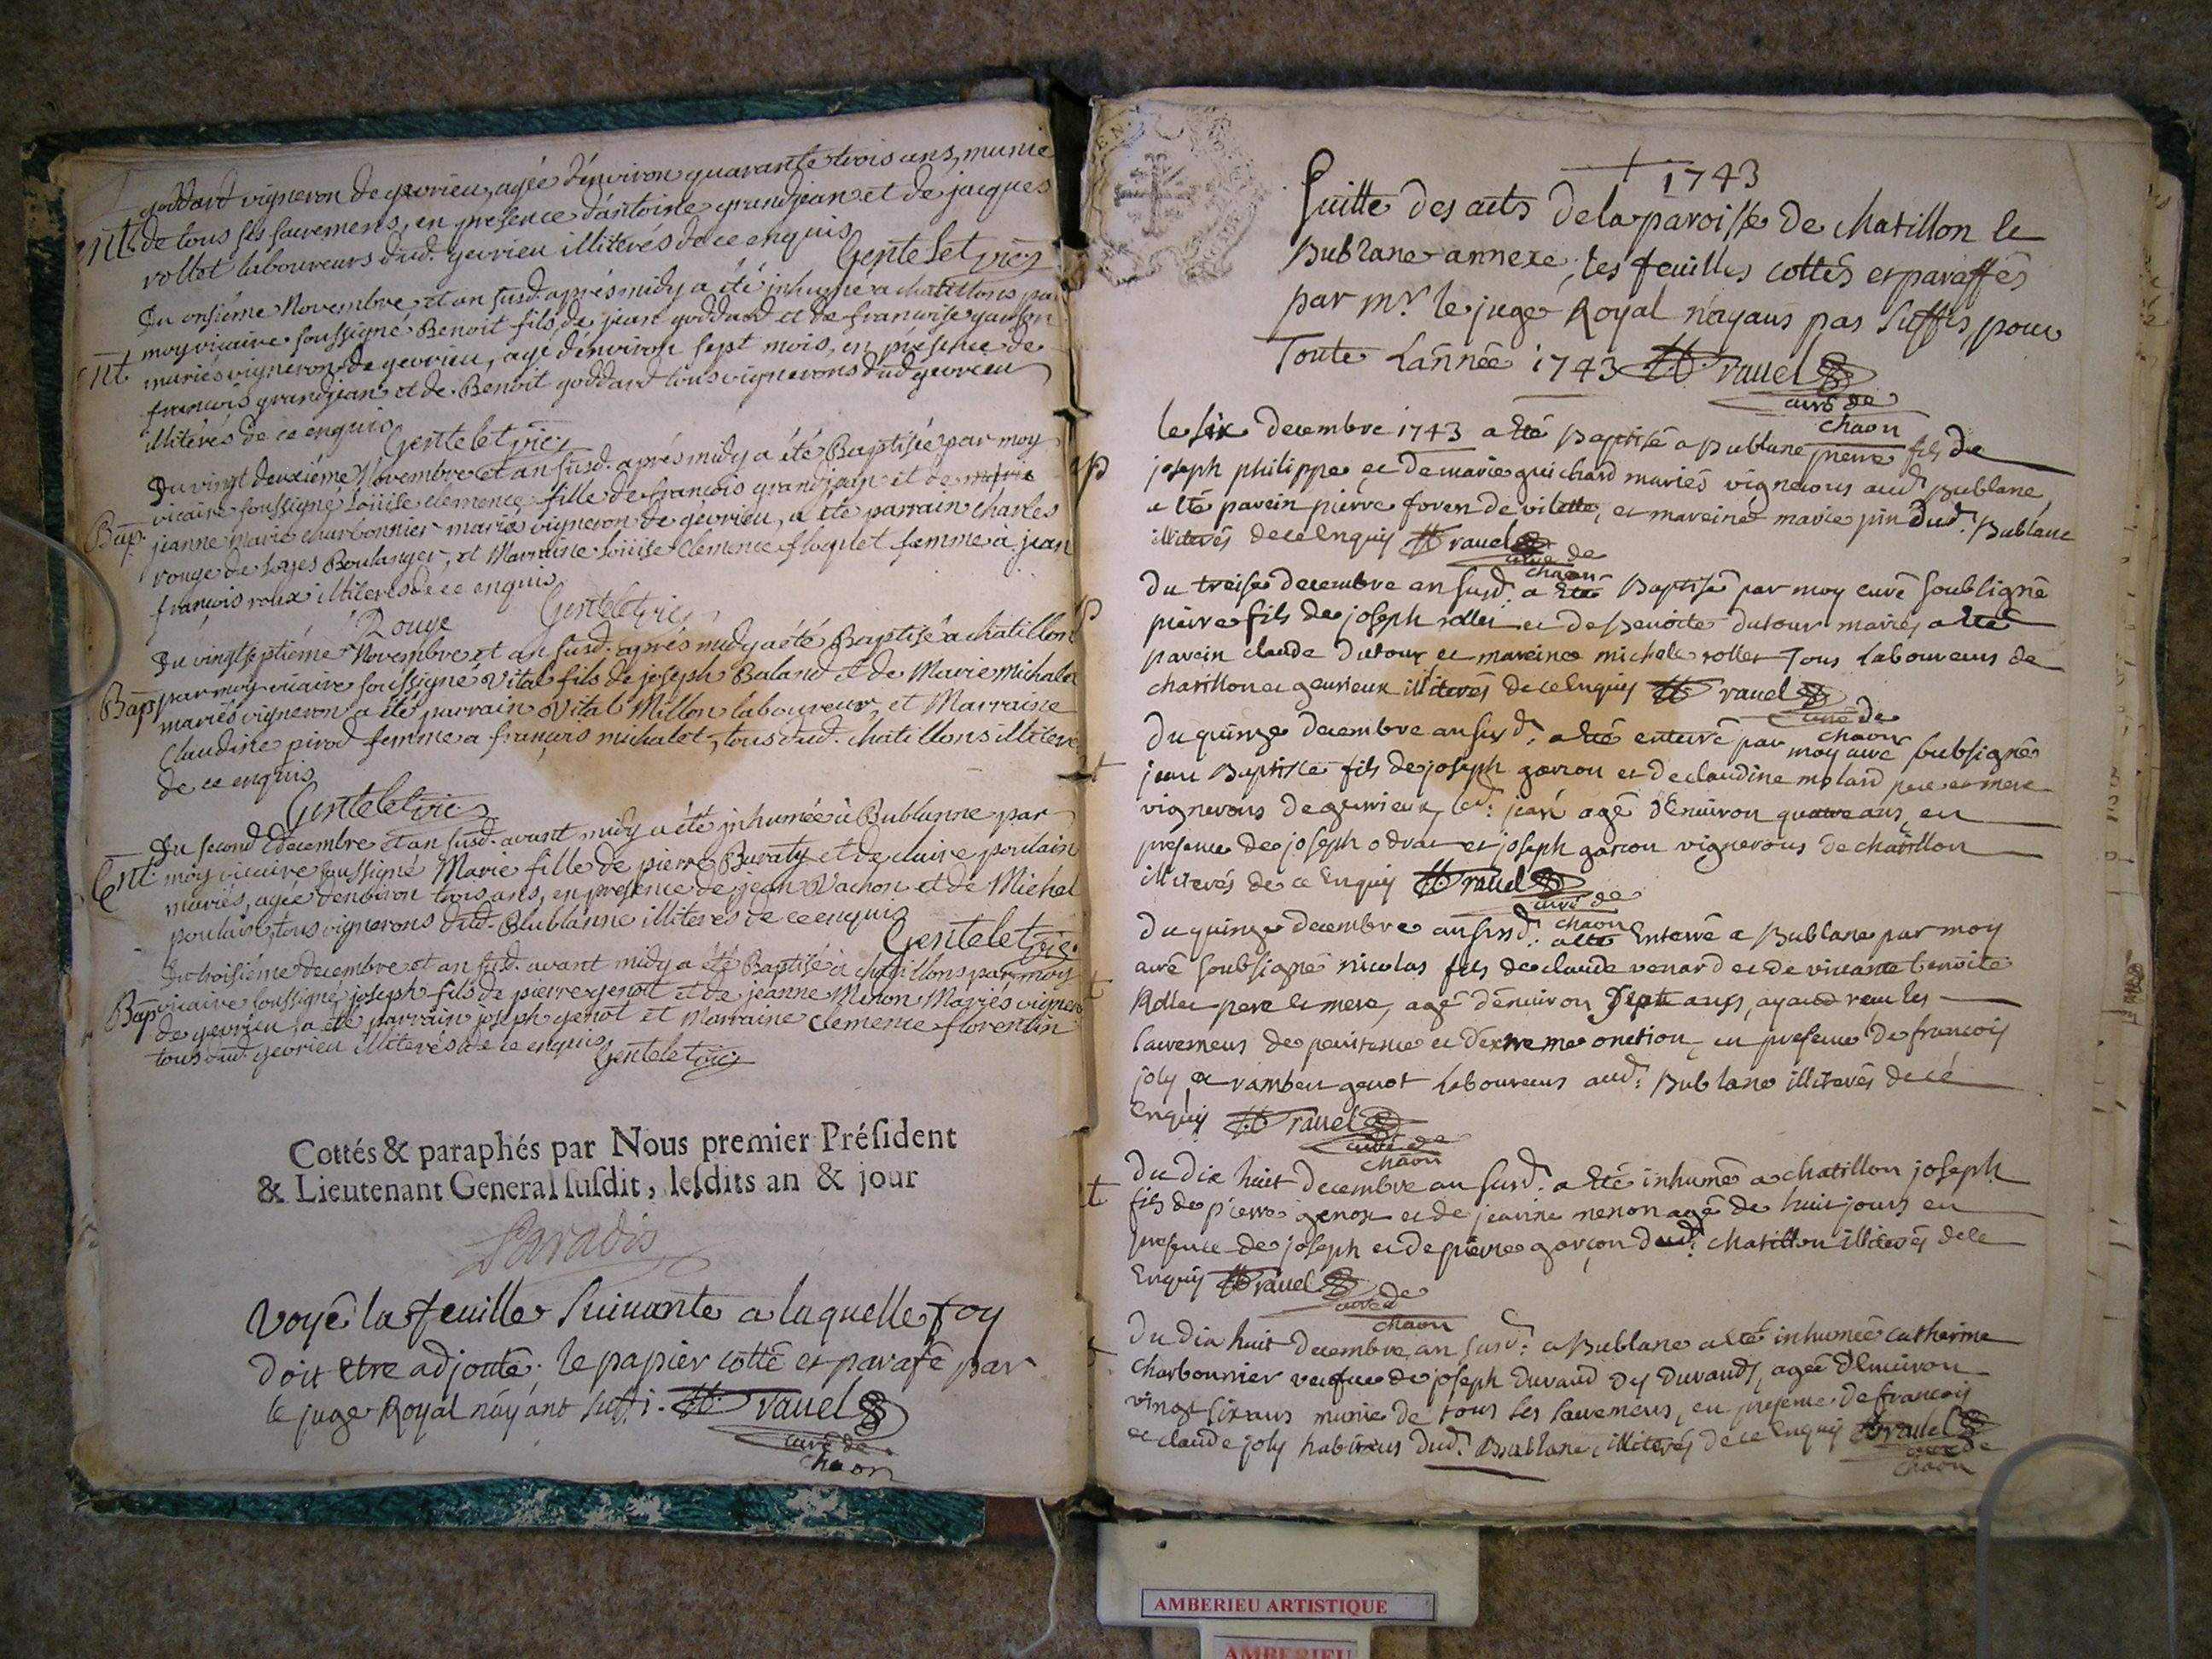 goddard vigneron de gevrieu, agée d'environ quarante trois ans, munie
Ent. de tous ses sacremens, en presence d'antoine grandjean et de jacques
rollet laboureurs dud. gevrieu illiterés de ce enquis
Gentelet vic.
Du onsiéme Novembre et an susd. aprés midy a été inhumé a chatillons par
moy vicaire soussigné Benoit fils de jean goddard et de francoise
Ent mariés vigneron de gevrieu, agé d'environ sept mois, en présence de
francois grandjean et de Benoit goddard tous vignerons dud gevrieu
illitérés de ce enquis
Gentelet vic.
Du vingt deuxiéme Novembre et an susd. aprés midy a été Baptisée par moy
vicaire soussigné Loüise clemence fille de francois grandjean et de
Bap. jeanne marie charbonnier mariés vigneron de gevrieu, a été parrain charles
rouge de Boulanger, et Marraine Loüise Clemence femme à jean
françois roux illiterés de ce enquis
Rouge Gentelet vic.
Du vingtseptiéme Novembre et an susd. aprés midy a été Baptisé a chatillon
Bap par moy vicaire soussigné Vital fils de joseph Baland et de Marie Michalet
mariés vigneron a été parrain Vital Millon laboureur, et Marraine
Claudine pirod femme a françois michalet, tous dud. chatillons illiteré
de ce enquis
Gentelet vic.
Du second Decembre et an susd. avant midy a été inhumée à Bublanne par
Ent moy vicaire soussigné Marie fille de pierre Buraty et de claire poulain
mariés, agée d'environ trois ans, en presence de jean Vachon et de Michel
poulain, tous vignerons dud. Bublanne illiterés de ce enquis
Gentelet vic.
Du troisiéme decembre et an susd. avant midy a été Baptisé à chatillons par moy
Bap vicaire soussigné joseph fils de pierre genot et de jeanne Menon Mariés vigneron
de gevrieu, a été parrain joseph genot et Marraine Clemence florentin
tous dud. gevrieu illiterés de ce enquis
Gentelet vic.
Cottés & paraphés par Nous premier Préſident
& Lieutenant General ſuſdit, leſdits an & jour
Paradis
Voyé la feuille suivante a laquelle foy
Doit Etre adjouté; le papier cotté et parafé par
le juge Royal n'ayant suffi. ravel
curé de
chaon
1743
Suitte des acts De la paroisse de chatillon le
Bublane annexe; les feuilles cottés et paraffés
par mr. le juge Royal n'ayans pas suffis, pour
Toute L'année 1743 ravel
curé de
chaon
le six decembre 1743 a eté Baptisé a Bublane pierre fils de
joseph philippe et de marie guichard mariés vignerons aud. Bublane,
a eté parein pierre de vilette, et mareine marie dud. Bublane
illiterés de ce Enquis ravel
curé de
chaon
Du treise decembre an susd: a eté Baptisé par moy curé soubsigné
pierre fils de joseph rollet et de Benoite dutour mariés a eté
parein claude dutour et mareine michele rollet Tous laboureurs de
chatillon et gevrieux illiterés de ce Enquis ravel
curé de
chaon
Du quinze decembre an susd: a eté enterré par moy curé subsigné
jean Baptiste fils de joseph garcon et de claudine molard pere et mere
vignerons de gevrieux, led: jean agé d'Environ quatre ans, en
presence de joseph odrat et joseph garcon vignerons de chatillon
illiterés de ce Enquis ravel
curé de
chaon
Du quinze decembre an susd: a eté Enterré a Bublane par moy
curé soubsigné nicolas fils de claude venard et de vincente Benoite
Rollet pere et mere, agé d'environ sept ans, ayant receu les
sacremens de penitence et d'extreme onction, en presence de francois
joly et rambert genot laboureurs aud: Bublane illiterés de cé
Enquis ravel
curé de
chaon
Du dix huit Decembre an susd: a eté inhumé a chatillon joseph
fils de pierre genot et de jeanne menon agé de huit jours en
presence de joseph et de pierre garçon dud: chatillon illiterés de ce
Enquis ravel
curé de
chaon
Du dix huit Decembre, an susd: a Bublane a eté inhumée catherine
charbonnier veufue de joseph durand dit durand, agée d'Environ
vingt six ans munie de tous ses sacremens, en presence de francois
et claude joly habitans dud: Bublane, illiterés de ce Enquis ravel
curé de
chaon
AMBERIEU ARTISTIQUE
AMBERIEU